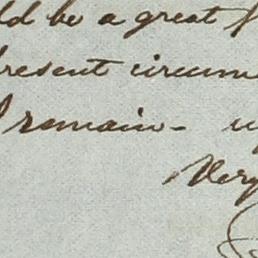 ld be a great f
resent circum
I remain-
Very